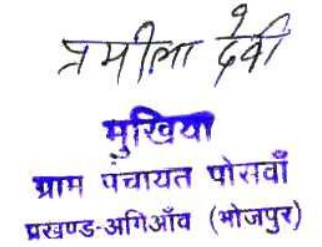 प्रमीला देवी
मुखिया
ग्राम पंचायत पोसवाँ
प्रखण्ड-अगिआँव (भोजपुर)